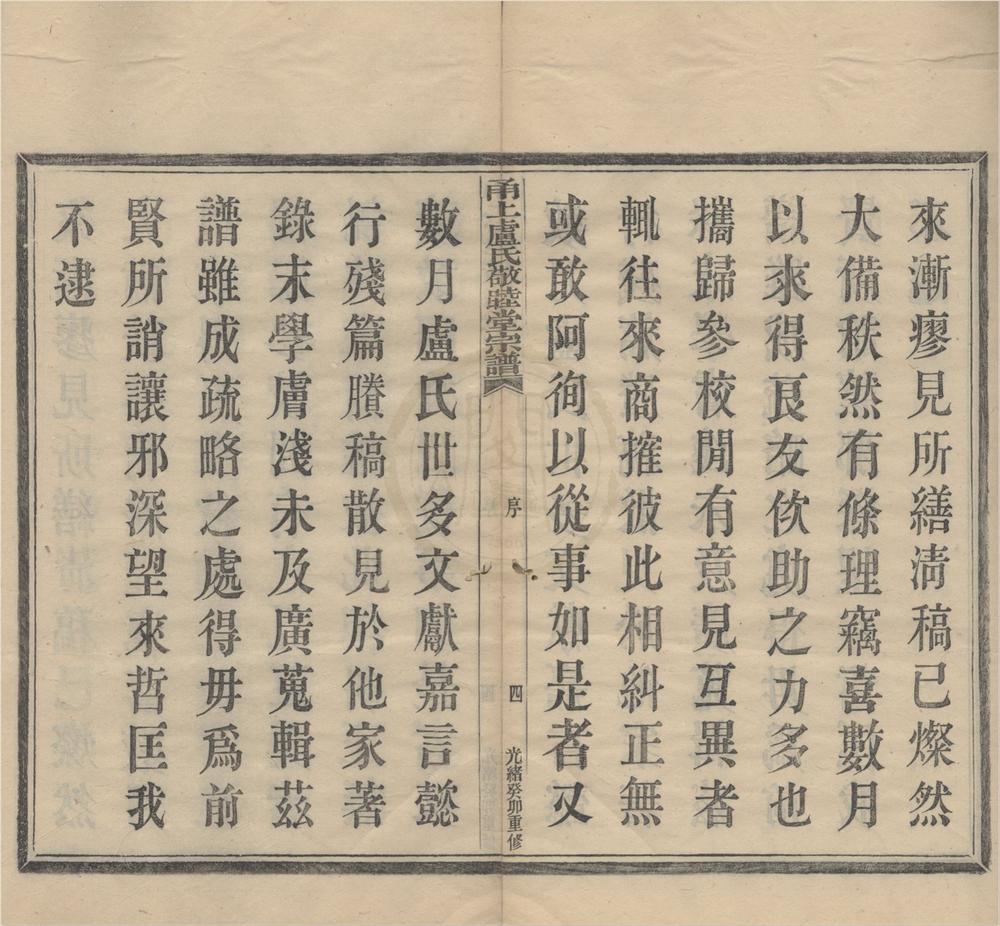 來漸瘳見所繕清稿已燦然
大備秩然有條理竊喜數月
以來得良友佽助之力多也
攜歸參校閒有意見互異者
輒往來商搉彼此相糾正無
或敢阿徇以從事如是者又
甬上盧氏敬睦堂宗譜
序
四
光緒癸卯重修
數月盧氏世多文獻嘉言懿
行殘篇賸稿散見於他家著
錄末學膚淺未及廣蒐輯茲
譜雖成疏略之處得毋爲前
賢所誚讓邪深望來哲匡我
不逮